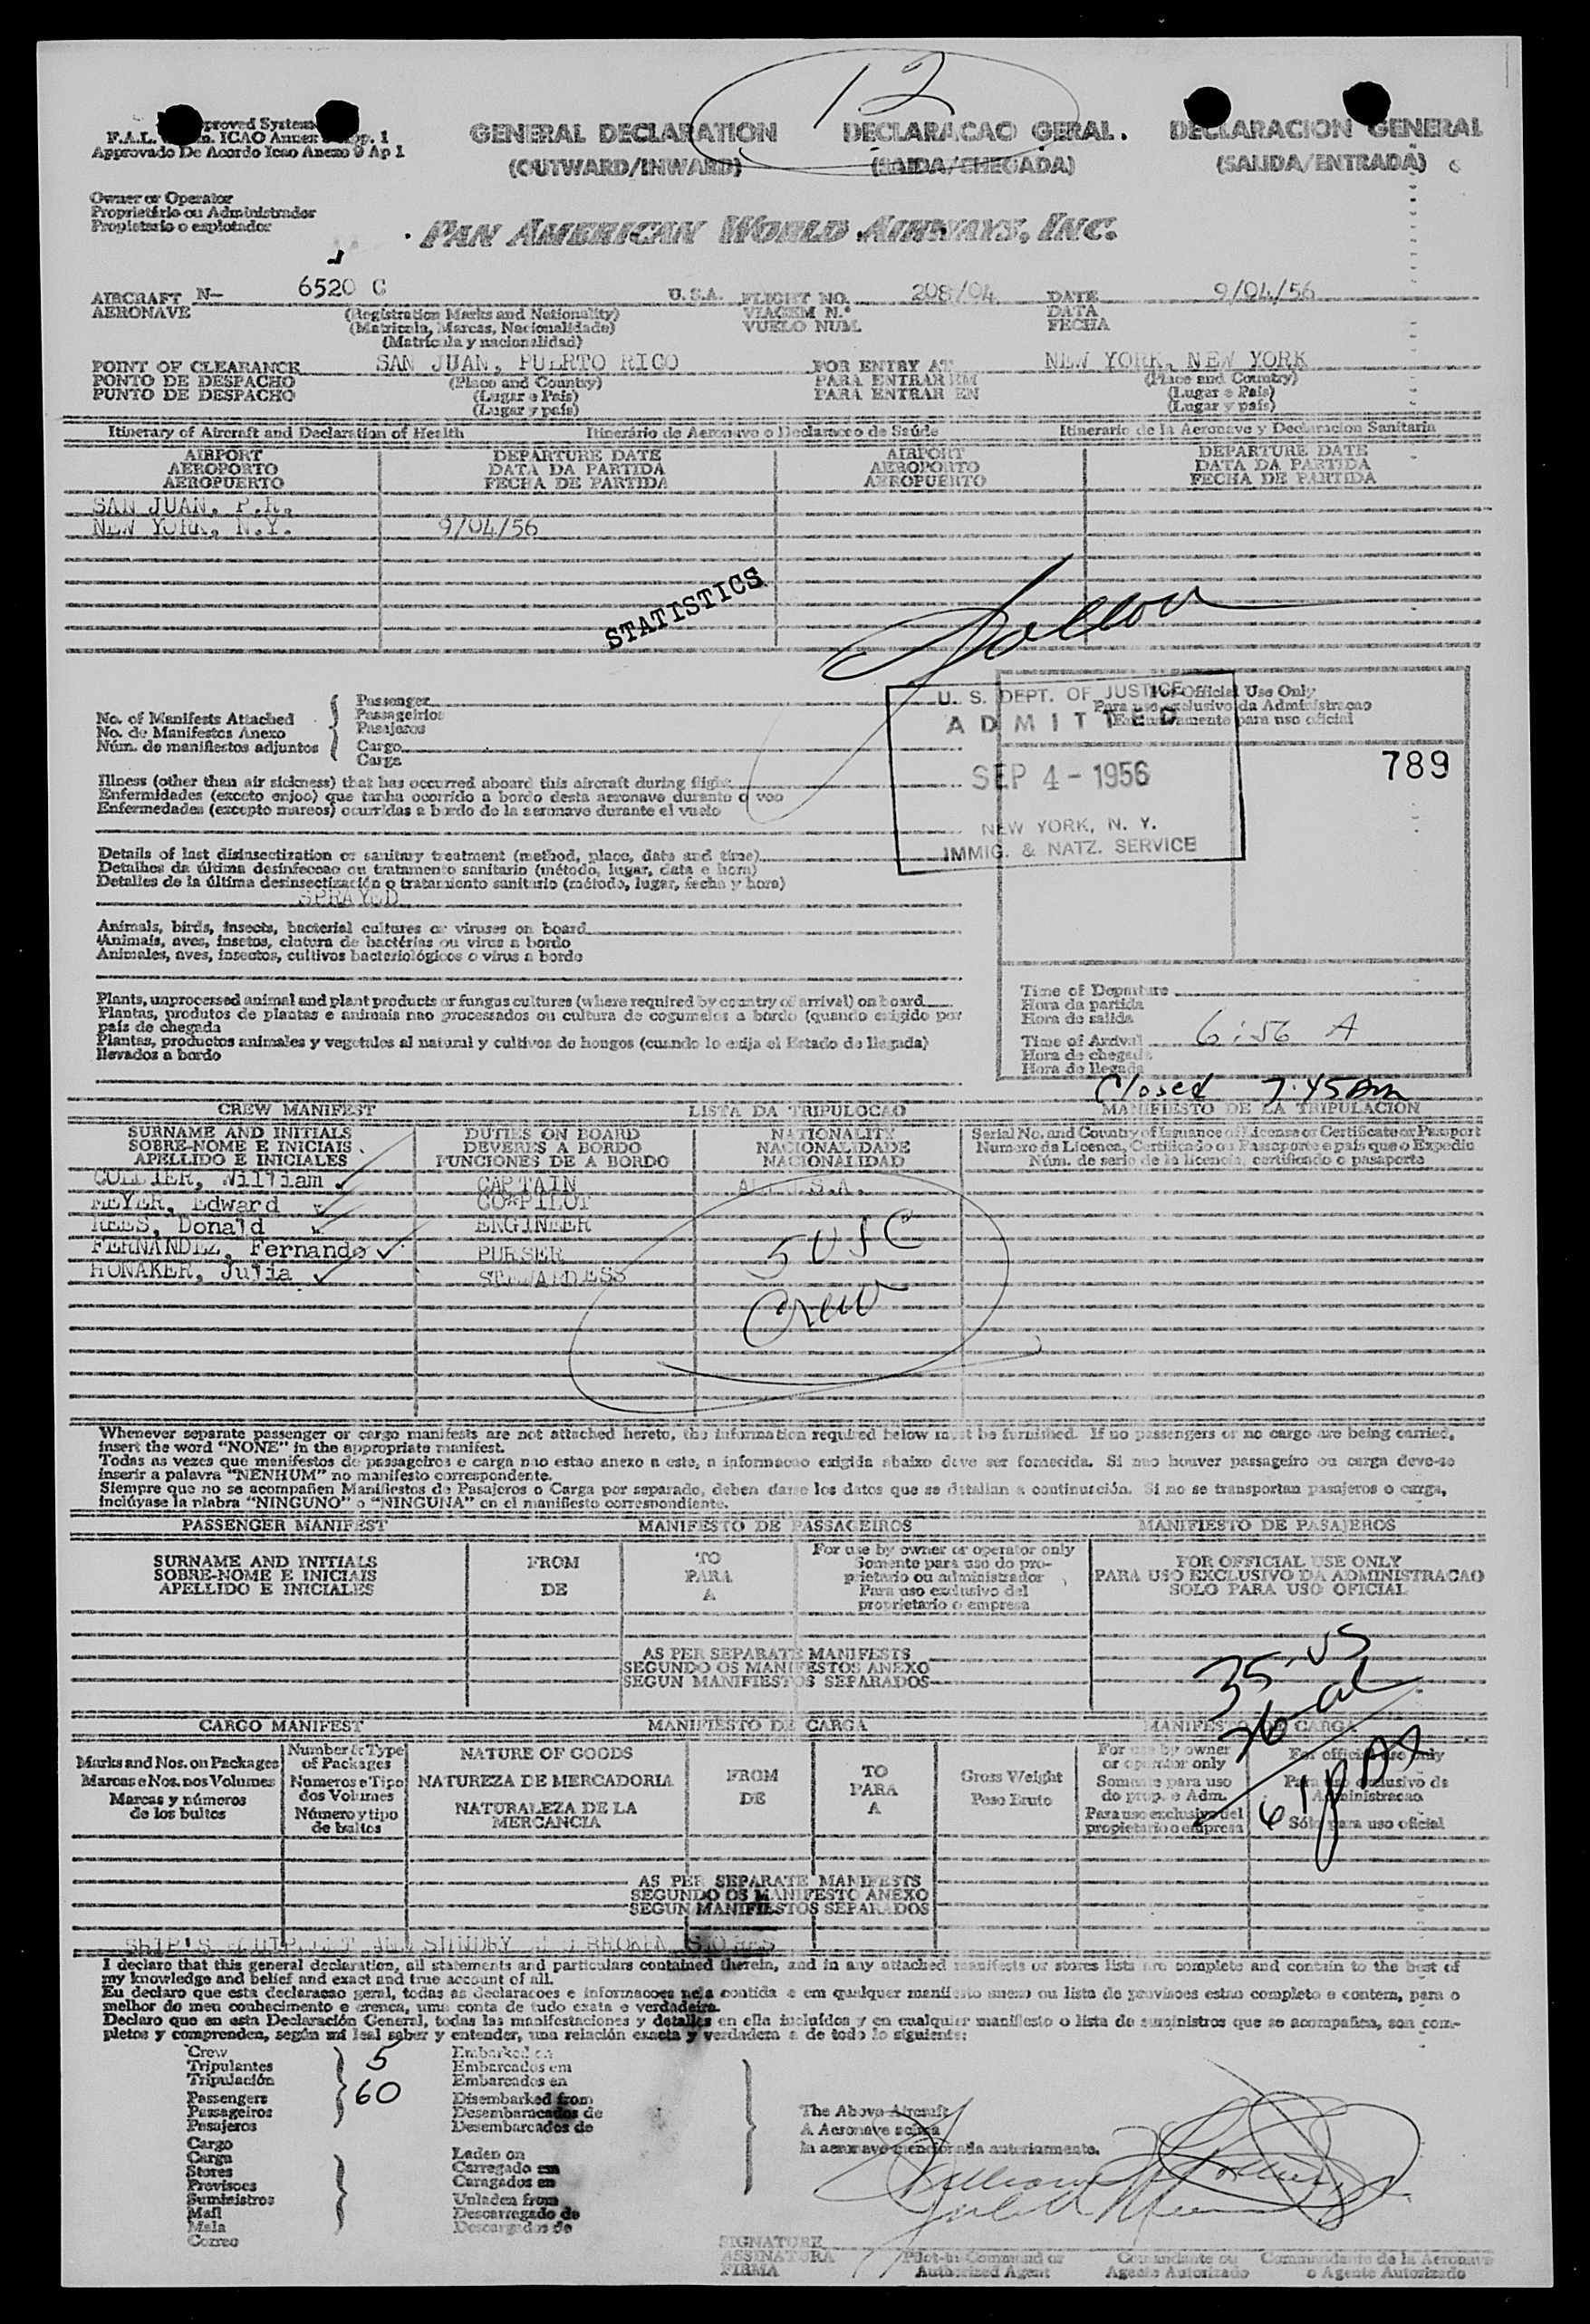 12
F.A.L. ICAO Annex 1
Approvado De Acordo Icao Anexo 9 Ap 1
GENERAL DECLARATION DECLARACAO GERAL. DECLARACION GENERAL
(OUTWARD/INWARD) (SAIDA/CHEGADA) (SALIDA/ENTRADA)
Owner or Operator
Proprietário ou Administrador
Propietario o explotador
PAN AMERICAN WORLD AIRWAYS, INC.
AIRCRAFT N- 6520 C U.S.A. FLIGHT NO. 208/04 DATE 9/04/56
AERONAVE (Registration Marks and Nationality) VIAGEM N.º DATA
(Matricola, Marcas, Nacionalidade) VUELO NUM. FECHA
(Matrícula y nacionalidad)
POINT OF CLEARANCE SAN JUAN, PUERTO RICO FOR ENTRY AT NEW YORK, NEW YORK
PONTO DE DESPACHO (Place and Country) PARA ENTRAR EM (Place and Country)
PUNTO DE DESPACHO (Lugar e País) PARA ENTRAR EN (Lugar e País)
(Lugar y país) (Lugar y país)
Itinerary of Aircraft and Declaration of Health Itinerário de Aeronave o Declaracao de Saúde Itinerario de la Aeronave y Declaracion Sanitaria
AIRPORT DEPARTURE DATE AIRPORT DEPARTURE DATE
AEROPORTO DATA DA PARTIDA AEROPORTO DATA DA PARTIDA
AEROPUERTO FECHA DE PARTIDA AEROPUERTO FECHA DE PARTIDA
SAN JUAN, P.R.
NEW YORK, N.Y. 9/04/56
STATISTICS
No. of Manifests Attached
No. de Manifestos Anexo
Núm. de manifiestos adjuntos
Passenger
Passageirios
Pasajeros
Cargo
Carga
U. S. DEPT. OF JUSTICE
ADMITTED
SEP 4 - 1956
NEW YORK, N. Y.
IMMIG. & NATZ. SERVICE
For Official Use Only
Para uso exclusivo da Administracao
Exclusivamente para uso oficial
789
Illness (other than air sickness) that has occurred aboard this aircraft during flight
Enfermidades (exceto enjoo) que tanha ocorrido a bordo desta aeronave durante o voo
Enfermedades (excepto mareos) ocurridas a bordo de la aeronave durante el vuelo
Details of last disinsectization or sanitary treatment (method, place, date and time)
Detalhes da última desinfeccao ou tratamento sanitario (método, lugar, data e hora)
Detalles de la última desinsectización o tratamiento sanitario (método, lugar, fecha y hora)
SPRAYED
Animals, birds, insects, bacterial cultures or viruses on board
Animais, aves, insetos, clutura de bactérias ou virus a bordo
Animales, aves, insectos, cultivos bacteriológicos o virus a bordo
Plants, unprocessed animal and plant products or fungus cultures (where required by country of arrival) on board
Plantas, produtos de plantas e animais nao processados ou cultura de cogumelos a bordo (quando exigido por
país de chegada
Plantas, productos animales y vegetales al natural y cultivos de hongos (cuando lo exija el Estado de llegada)
llevados a bordo
Time of Departure
Hora da partida
Hora de salida
Time of Arrival 6:56 A
Hora de chegada
Hora de llegada
Closed 7:45 Am
CREW MANIFEST LISTA DA TRIPULOCAO MANIFIESTO DE LA TRIPULACION
SURNAME AND INITIALS DUTIES ON BOARD NATIONALITY Serial No. and Country of Issuance of License or Certificate or Passport
SOBRE-NOME E INICIAIS DEVERES A BORDO NACIONALIDADE Numero da Licenca, Certificado ou Passaporte e país que o Expedio
APELLIDO E INICIALES FUNCIONES DE A BORDO NACIONALIDAD Núm. de serie de la licencia, certificado o pasaporte
COLLIER, William CAPTAIN ALL U.S.A.
MEYER, Edward CO*PILOT
REES, Donald ENGINEER
FERNANDEZ, Fernando PURSER
HONAKER, Julia STEWARDESS
5 USC
Crew
Whenever separate passenger or cargo manifests are not attached hereto, the information required below must be furnished. If no passengers or no cargo are being carried,
insert the word "NONE" in the appropriate manifest.
Todas as vezes que manifestos de passageiros e carga nao estao anexo a este, a informacao exigida abaixo deve ser fornecida. Si nao houver passageiro ou carga deve-se
inserir a palavra "NENHUM" no manifesto correspondente.
Siempre que no se acompañen Manifiestos de Pasajeros o Carga por separado, deben darse los datos que se detallan a continuación. Si no se transportan pasajeros o carga,
inclúyase la plabra "NINGUNO" o "NINGUNA" en el manifiesto correspondiente.
PASSENGER MANIFEST MANIFESTO DE PASSAGEIROS MANIFIESTO DE PASAJEROS
SURNAME AND INITIALS FROM TO For use by owner or operator only FOR OFFICIAL USE ONLY
SOBRE-NOME E INICIAIS PARA Somente para uso do pro- PARA USO EXCLUSIVO DA ADMINISTRACAO
APELLIDO E INICIALES DE A prietario ou administrador SOLO PARA USO OFICIAL
Para uso exclusivo del
proprietario o empresa
AS PER SEPARATE MANIFESTS
SEGUNDO OS MANIFESTOS ANEXO
SEGUN MANIFIESTOS SEPARADOS
35-US
26-al
61 pax
CARGO MANIFEST MANIFIESTO DE CARGA MANIFESTO CARGA
Marks and Nos. on Packages Number & Type of Packages NATURE OF GOODS FROM TO Gross Weight For use by owner or operator only For official use only
Marcas e Nos. nos Volumes Numeros e Tipo dos Volumes NATUREZA DE MERCADORIA DE PARA Peso Bruto Somente para uso do prop. e Adm. Para uso exclusivo da Administracao
Marcas y números de los bultos Número y tipo de bultos NATURALEZA DE LA MERCANCIA A Para uso exclusivo del propietario o empresa Sólo para uso oficial
AS PER SEPARATE MANIFESTS
SEGUNDO OS MANIFESTO ANEXO
SEGUN MANIFIESTOS SEPARADOS
SHIP'S EQUIPMENT AND SUNDRY AND BROKEN STORES
I declare that this general declaration, all statements and particulars contained therein, and in any attached manifests or stores lists are complete and contain to the best of
my knowledge and belief and exact and true account of all.
Eu declaro que esta declaracao geral, todas as declaracoes e informacoes nela contida e em qualquer manifesto anexo ou lista de provisoes estao completo e contem, para o
melhor do meu conhecimento e crenca, uma conta de tudo exata e verdadeira.
Declaro que en asta Declaración General, todas las manifestaciones y detalles en ella incluídos y en cualquier manifiesto o lista de suministros que se acompañan, son com-
pletos y comprenden, según mi leal saber y entender, una relación exacta y verdadera a de todo lo siguiente:
Crew 5 Embarked on
Tripulantes Embarcados em
Tripulación Embarcados en
Passengers 60 Disembarked from
Passageiros Desembaracados de
Pasajeros Desembarcados de
Cargo
Carga Laden on
Stores Carregado em
Provisoes Caragados en
Suministros Unladen from
Mail Descarregado de
Mala Descargados de
Correo
The Above Aircraft
A Aeronave acima
la aeronave mencionada anteriormente.
SIGNATURE
ASSINATURA Pilot-in Command or Comandante ou Commandante de la Aeronave
FIRMA Authorized Agent Agente Autorizado o Agente Autorizado